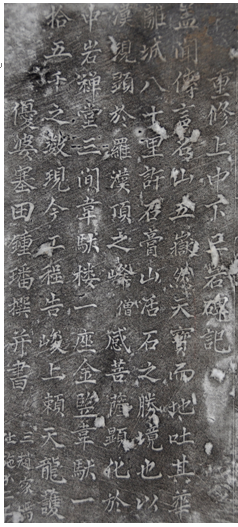 重修上中下岩碑記
蓋聞傳言名山五嶽然天寶而地吐其華
離城八十里許石膏山活石之勝境也以
漢現頭於羅漢頂之峰僧感菩薩顯化於
中岩禅堂三间韋馱楼一座金監韋馱一
拾五千之歲現今工程告峻上頼天龍護
優婆塞田鍾璠撰并書
三村